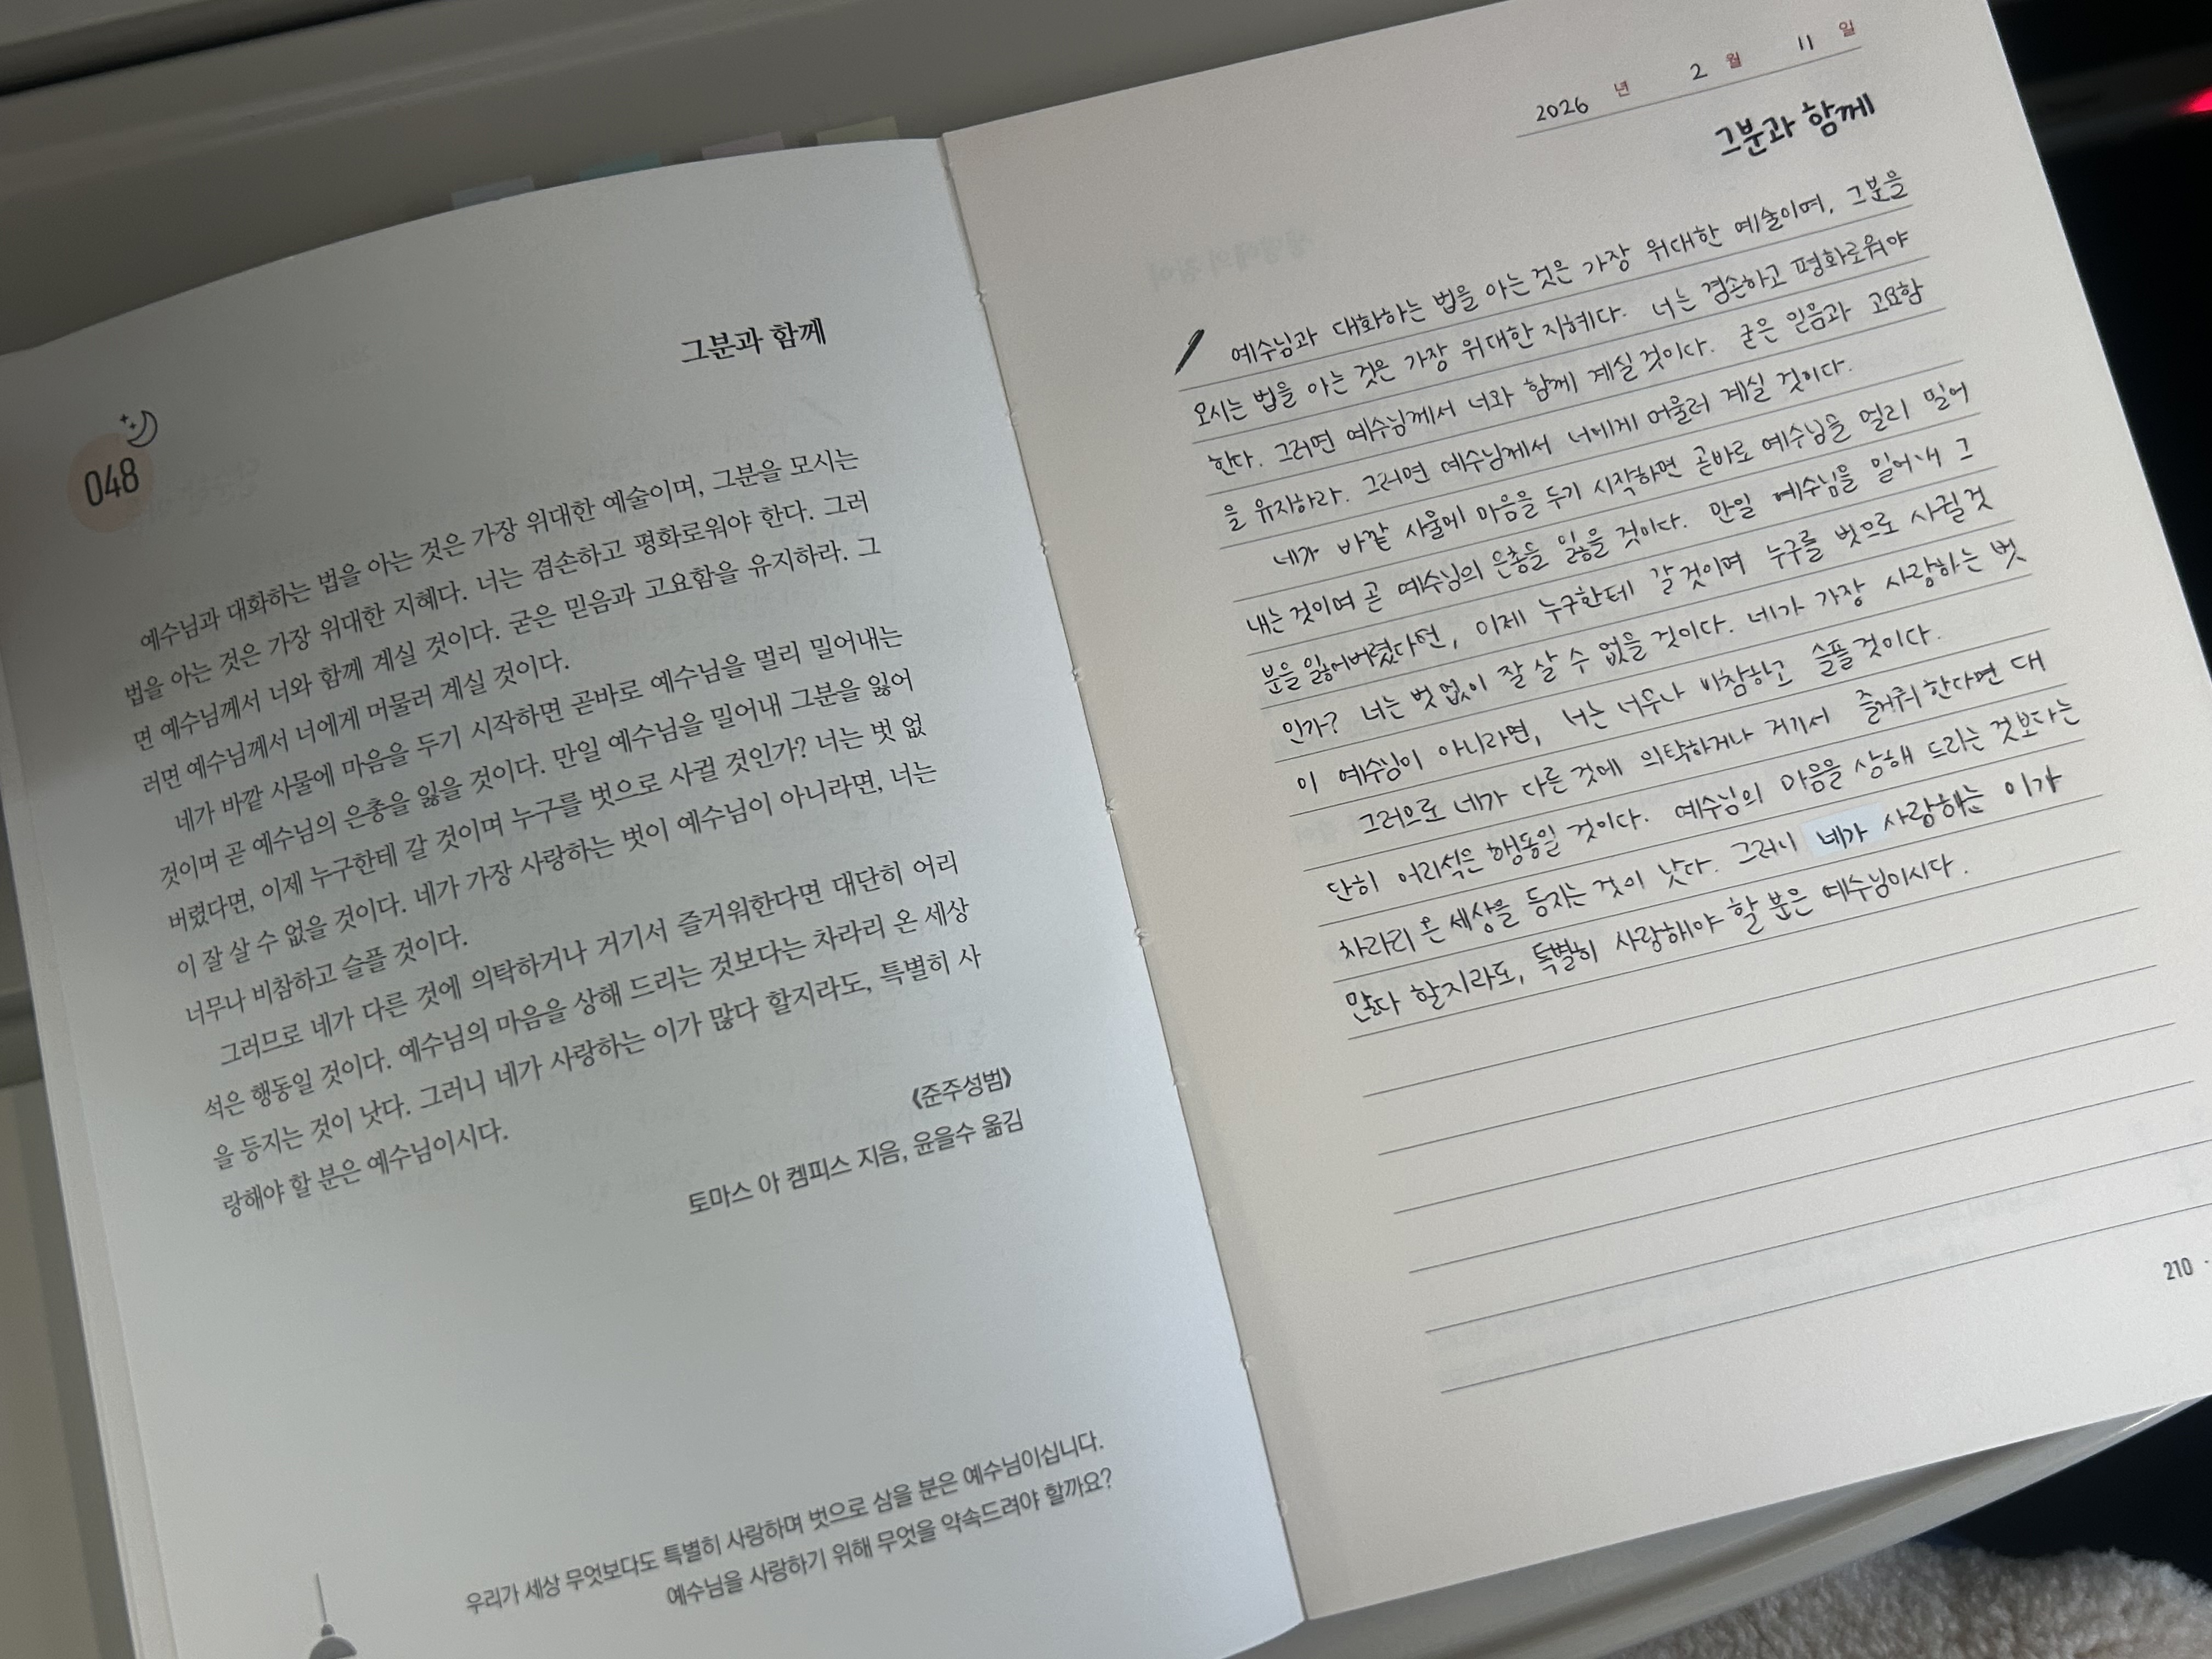 048
그분과 함께
예수님과 대화하는 법을 아는 것은 가장 위대한 예술이며, 그분을 모시는
법을 아는 것은 가장 위대한 지혜다. 너는 겸손하고 평화로워야 한다. 그러
면 예수님께서 너와 함께 계실 것이다. 굳은 믿음과 고요함을 유지하라. 그
러면 예수님께서 너에게 머물러 계실 것이다.
네가 바깥 사물에 마음을 두기 시작하면 곧바로 예수님을 멀리 밀어내는
것이며 곧 예수님의 은총을 잃을 것이다. 만일 예수님을 밀어내 그분을 잃어
버렸다면, 이제 누구한테 갈 것이며 누구를 벗으로 사귈 것인가? 너는 벗 없
이 잘 살 수 없을 것이다. 네가 가장 사랑하는 벗이 예수님이 아니라면, 너는
너무나 비참하고 슬플 것이다.
그러므로 네가 다른 것에 의탁하거나 거기서 즐거워한다면 대단히 어리
석은 행동일 것이다. 예수님의 마음을 상해 드리는 것보다는 차라리 온 세상
을 등지는 것이 낫다. 그러니 네가 사랑하는 이가 많다 할지라도, 특별히 사
랑해야 할 분은 예수님이시다.
《준주성범》
토마스 아 켐피스 지음, 윤을수 옮김
우리가 세상 무엇보다도 특별히 사랑하며 벗으로 삼을 분은 예수님이십니다.
예수님을 사랑하기 위해 무엇을 약속드려야 할까요?
2026 년 2 월 11 일
그분과 함께
예수님과 대화하는 법을 아는 것은 가장 위대한 예술이며, 그분을
모시는 법을 아는 것은 가장 위대한 지혜다. 너는 겸손하고 평화로워야
한다. 그러면 예수님께서 너와 함께 계실 것이다. 굳은 믿음과 고요함
을 유지하라. 그러면 예수님께서 너에게 머물러 계실 것이다.
네가 바깥 사물에 마음을 두기 시작하면 곧바로 예수님을 멀리 밀어
내는 것이며 곧 예수님의 은총을 잃을 것이다. 만일 예수님을 밀어내 그
분을 잃어버렸다면, 이제 누구한테 갈 것이며 누구를 벗으로 사귈 것
인가? 너는 벗 없이 잘 살 수 없을 것이다. 네가 가장 사랑하는 벗
이 예수님이 아니라면, 너는 너무나 비참하고 슬플 것이다.
그러므로 네가 다른 것에 의탁하거나 거기서 즐거워한다면 대
단히 어리석은 행동일 것이다. 예수님의 마음을 상해 드리는 것보다는
차라리 온 세상을 등지는 것이 낫다. 그러니 네가 사랑하는 이가
많다 할지라도, 특별히 사랑해야 할 분은 예수님이시다.
210